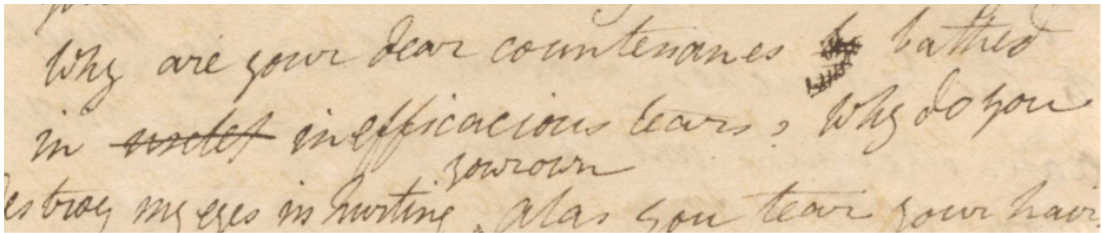 Why are your dear countenanes bathed
in inefficacious tears, Why do you
your own
destroy my eyes in hurting alas you tear your hair